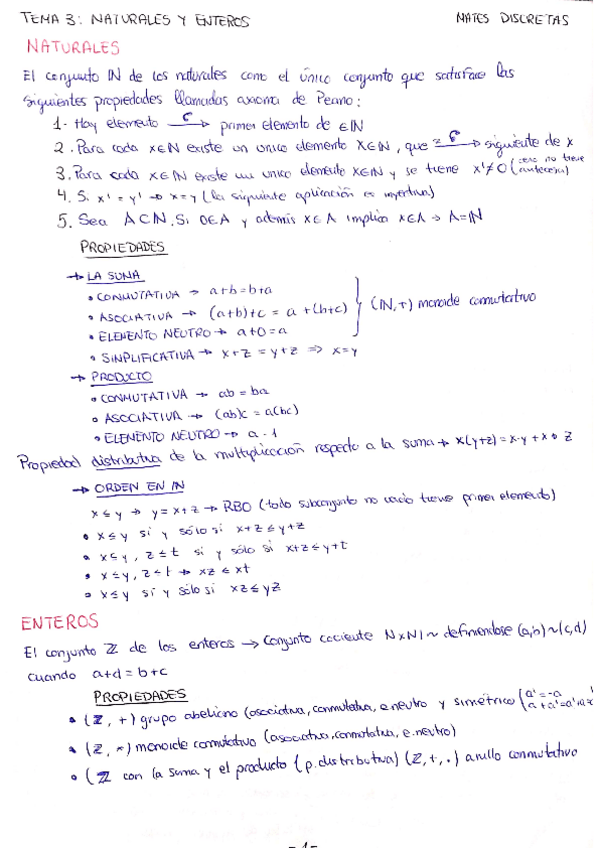 TEMA 3: NATURALES Y ENTEROS MATES DISCRETAS
NATURALES
El conjunto ℕ de los naturales como el único conjunto que satisface las
siguientes propiedades llamadas axioma de Peano:
1- Hay elemento → primer elemento de ∈ℕ
2. Para cada x∈ℕ existe un unico elemento x∈ℕ, que → siguiente de x
3. Para cada x∈ℕ existe un unico elemento x∈ℕ y se tiene x'≠0 (cero no tiene
antecesor)
4. Si x' = y' → x=y (la siguiente aplicación es inyectiva)
5. Sea A⊂N. Si 0∈A y además x∈A implica x∈A → A=ℕ
PROPIEDADES
→ LA SUMA
• CONMUTATIVA → a+b=b+a
• ASOCIATIVA → (a+b)+c = a+(b+c) } (ℕ,+) monoide conmutativo
• ELEMENTO NEUTRO → a+0=a
• SINPLIFICATIVA → x+z = y+z => x=y
→ PRODUCTO
• CONMUTATIVA → ab = ba
• ASOCIATIVA → (ab)c = a(bc)
• ELEMENTO NEUTRO → a·1
Propiedad distributiva de la multiplicación respecto a la suma → x(y+z)=x·y+x·z
→ ORDEN EN ℕ
x≤y → y=x+z → RBO (todo subconjunto no vacio tiene primer elemento)
• x≤y si y sólo si x+z≤y+z
• x≤y, z≤t si y sólo si x+z≤y+t
• x≤y, z≤t → xz≤xt
• x≤y si y sólo si xz≤yz
ENTEROS
El conjunto ℤ de los enteros → Conjunto cociente NxN/~ definiendose (a,b)~(c,d)
cuando a+d=b+c
PROPIEDADES
• (ℤ,+) grupo abeliano (asociativa, conmutativa, e.neutro y simétrico (a'=-a
a+a'=a'+a
• (ℤ,*) monoide conmutativo (asociativa, conmutativa, e.neutro)
• (ℤ con la suma y el producto (p.distributiva) (ℤ,+,.) anillo conmutativo
-1-